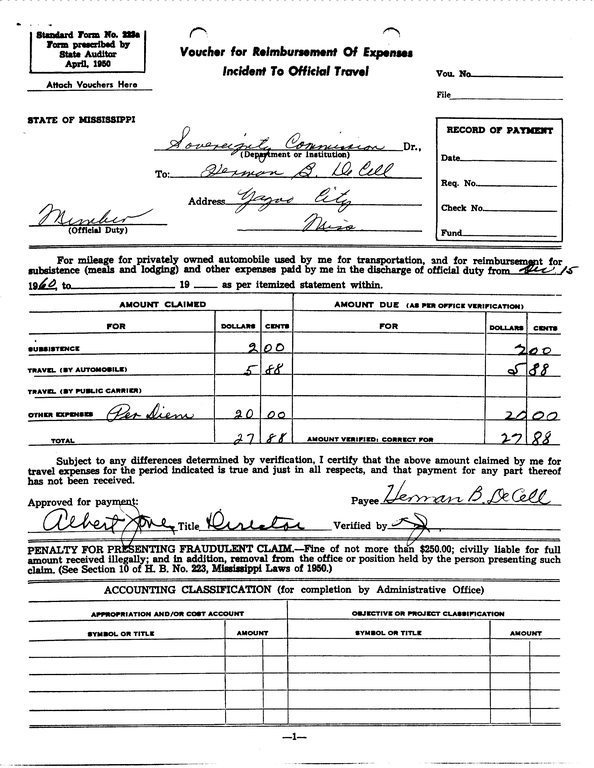 Standard Form No. 223a
Form prescribed by
State Auditor
April, 1950
Attach Vouchers Here
Voucher for Reimbursement Of Expenses
Incident To Official Travel
Vou. No.
File
STATE OF MISSISSIPPI
Sovereignty Commission Dr.,
(Department or Institution)
To: Herman B. DeCell
Address Yazoo City
Miss.
Member
(Official Duty)
RECORD OF PAYMENT
Date
Req. No.
Check No.
Fund
For mileage for privately owned automobile used by me for transportation, and for reimbursement for
subsistence (meals and lodging) and other expenses paid by me in the discharge of official duty from Dec 15
1960, to 19 as per itemized statement within.
AMOUNT CLAIMED AMOUNT DUE (AS PER OFFICE VERIFICATION)
FOR DOLLARS CENTS FOR DOLLARS CENTS
SUBSISTENCE 2 00 2 00
TRAVEL (BY AUTOMOBILE) 5 88 5 88
TRAVEL (BY PUBLIC CARRIER)
OTHER EXPENSES Per Diem 20 00 20 00
TOTAL 27 88 AMOUNT VERIFIED; CORRECT FOR 27 88
Subject to any differences determined by verification, I certify that the above amount claimed by me for
travel expenses for the period indicated is true and just in all respects, and that payment for any part thereof
has not been received.
Approved for payment: Payee Herman B. DeCell
Albert Jones Title Director Verified by
PENALTY FOR PRESENTING FRAUDULENT CLAIM.—Fine of not more than $250.00; civilly liable for full
amount received illegally; and in addition, removal from the office or position held by the person presenting such
claim. (See Section 10 of H. B. No. 223, Mississippi Laws of 1950.)
ACCOUNTING CLASSIFICATION (for completion by Administrative Office)
APPROPRIATION AND/OR COST ACCOUNT OBJECTIVE OR PROJECT CLASSIFICATION
SYMBOL OR TITLE AMOUNT SYMBOL OR TITLE AMOUNT
—1—